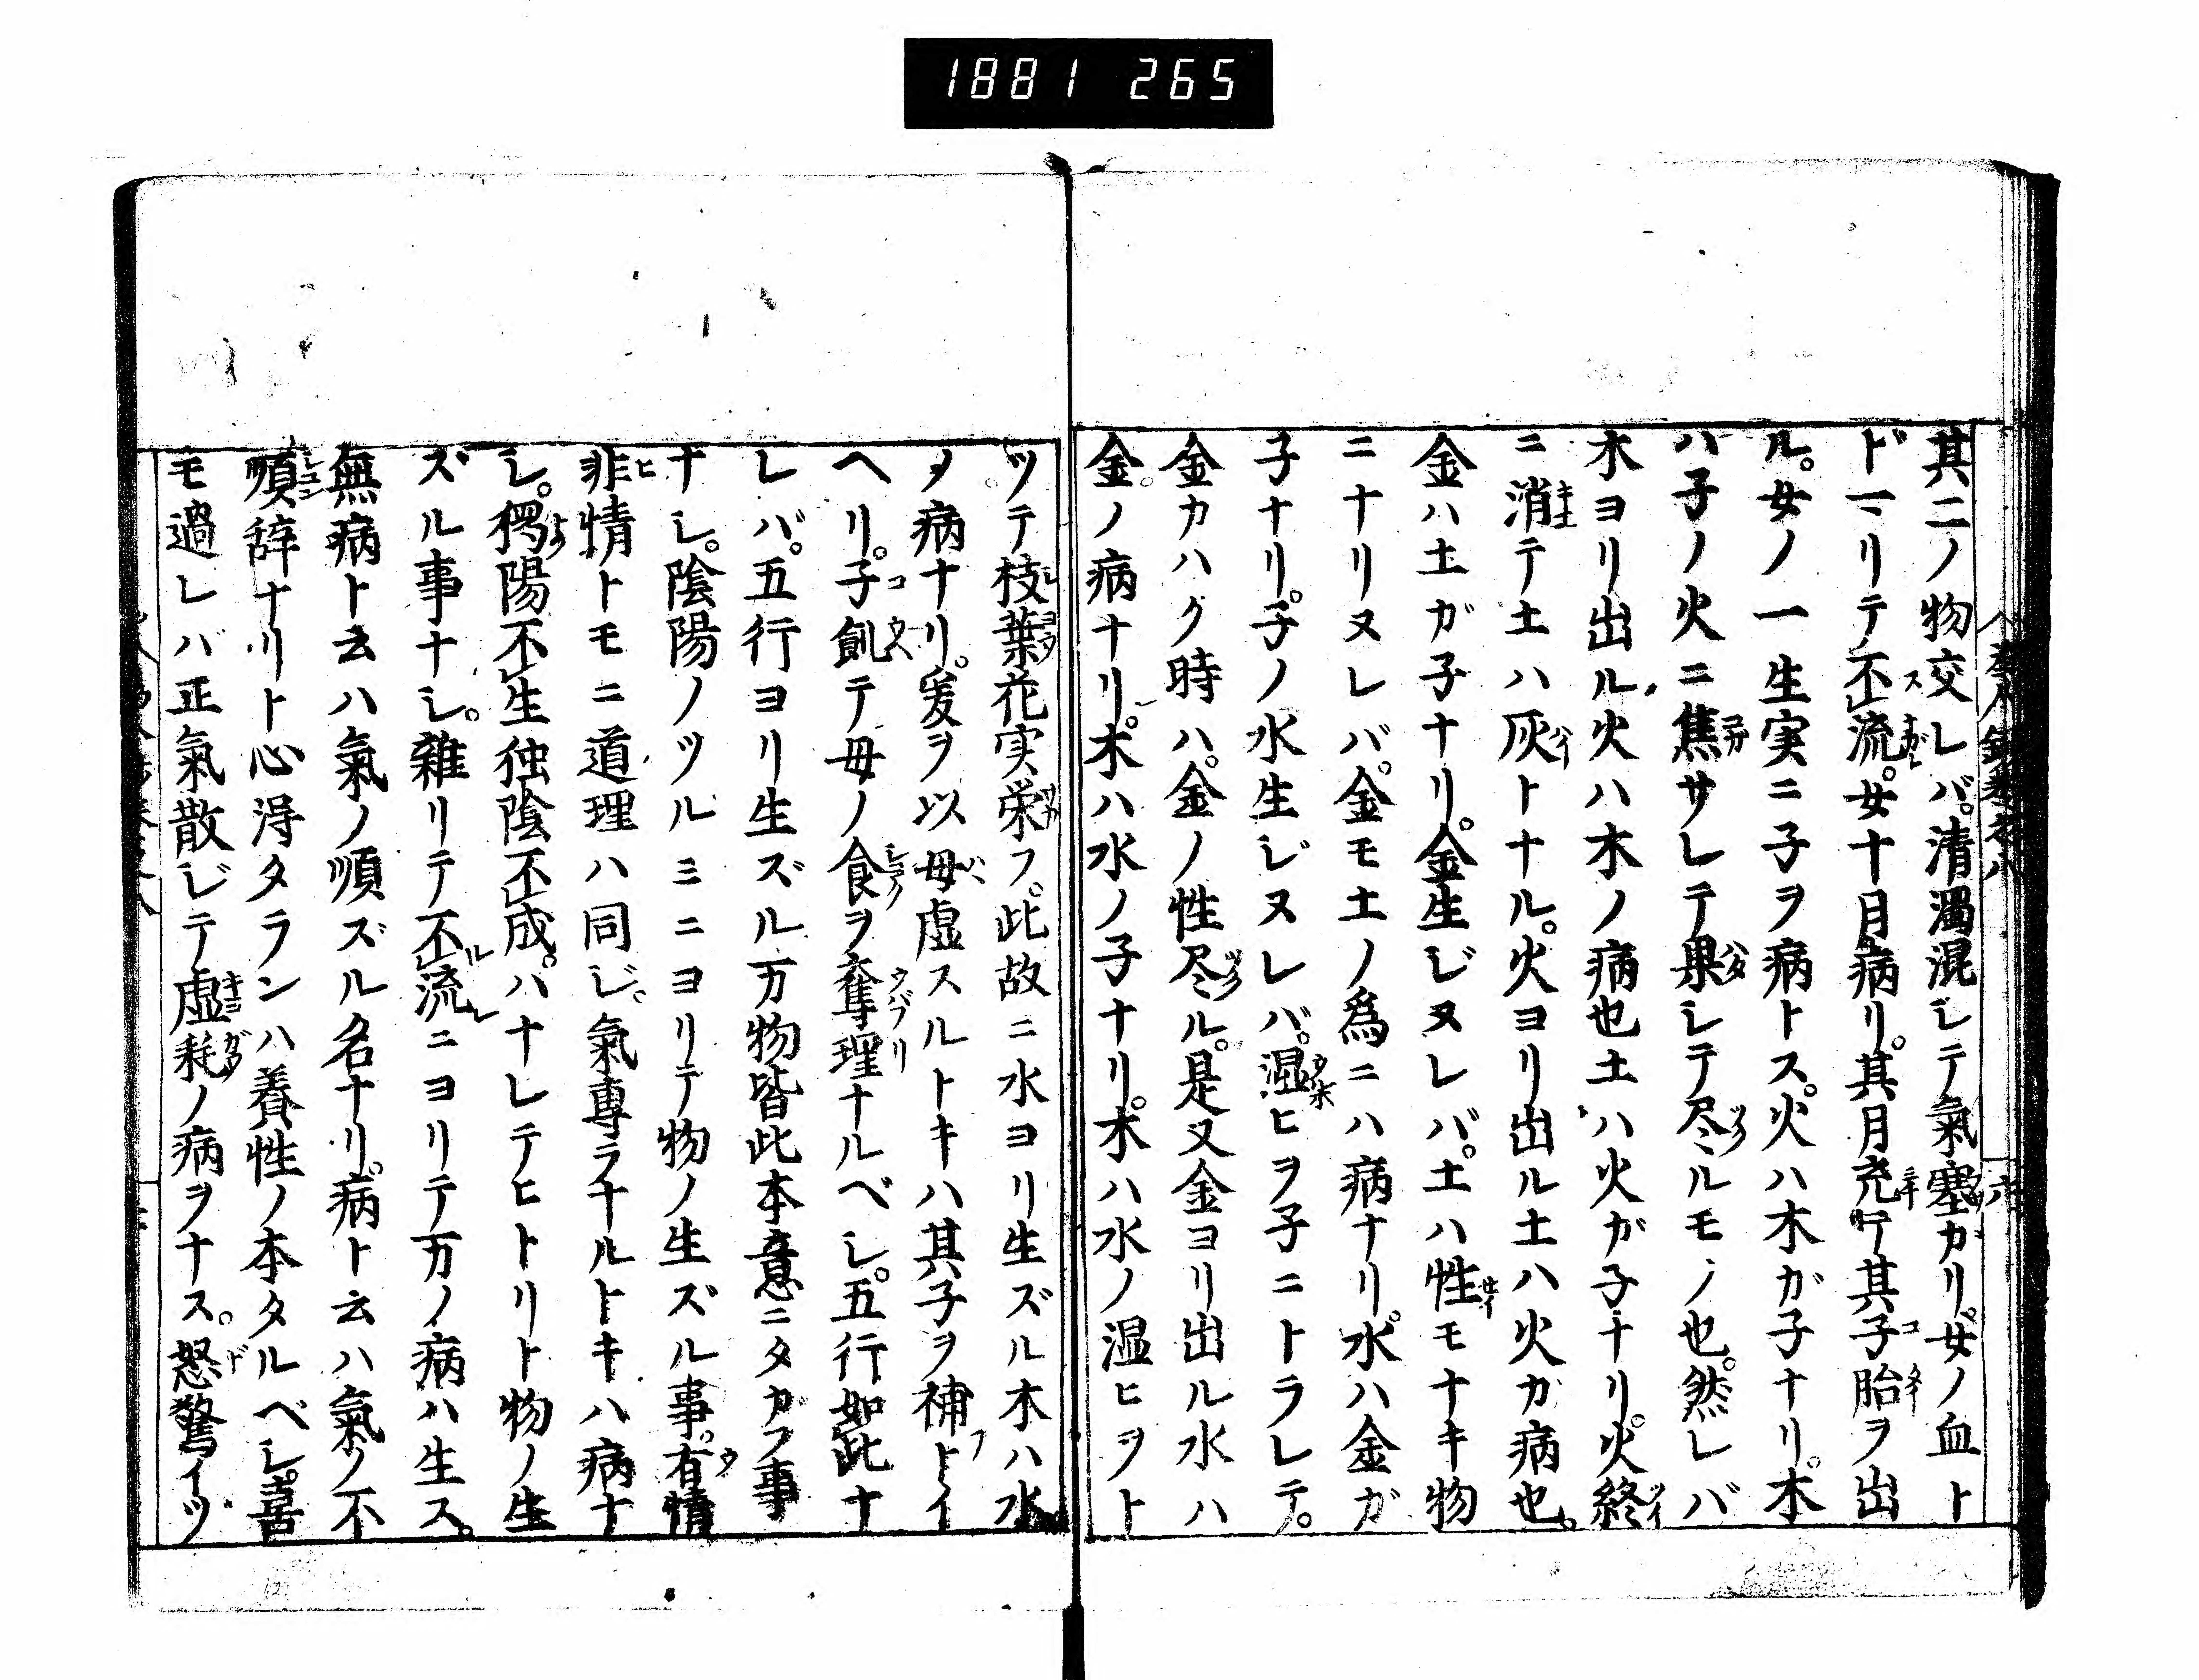 1881 265
其二ノ物交レバ。清濁混シテ氣塞カリ。女ノ血ト
ドヾマリテ不流。女十月病リ。其月充テ其子胎ヲ出
ル。女ノ一生実ニ子ヲ病トス。火ハ木ガ子ナリ。木
ハ子ノ火ニ焦サレテ果シテ尽ルモノ也。然レバ
木ヨリ出ル火ハ木ノ病也土ハ火ガ子ナリ。火終
ニ消テ土ハ灰トナル。火ヨリ出ル土ハ火カ病也。
金ハ土ガ子ナリ。金生ジヌレバ。土ハ性モナキ物
ニナリヌレバ。金モ土ノ為ニハ病ナリ。水ハ金ガ
子ナリ。子ノ水生ジヌレバ。湿ヒヲ子ニトラレテ。
金カハク時ハ。金ノ性尽ル。是又金ヨリ出ル水ハ
金ノ病ナリ。木ハ水ノ子ナリ。木ハ水ノ湿ヒヲト
ツテ枝葉花実栄フ。此故ニ水ヨリ生ズル木ハ水
ノ病ナリ。爰ヲ以母虚スルトキハ其子ヲ補トイ
ヘリ。子飢テ母ノ食ヲ奪理ナルベシ。五行如此ナ
レバ。五行ヨリ生ズル万物皆此本意ニタガフ事
ナシ。陰陽ノツルミニヨリテ物ノ生ズル事。有情
非情トモニ道理ハ同じ。氣專ラナルトキハ病ナ
シ。孤陽不生独陰不成。ハナレテヒトリト物ノ生
ズル事ナシ。雜リテ不流ニヨリテ万ノ病ハ生ス。
無病ト云ハ氣ノ順ズル名ナリ。病ト云ハ氣ノ不
順辞ナリト心得タランハ養性ノ本タルベシ。喜
モ過レバ正氣散ジテ虚耗ノ病ヲナス。怒驚イツ